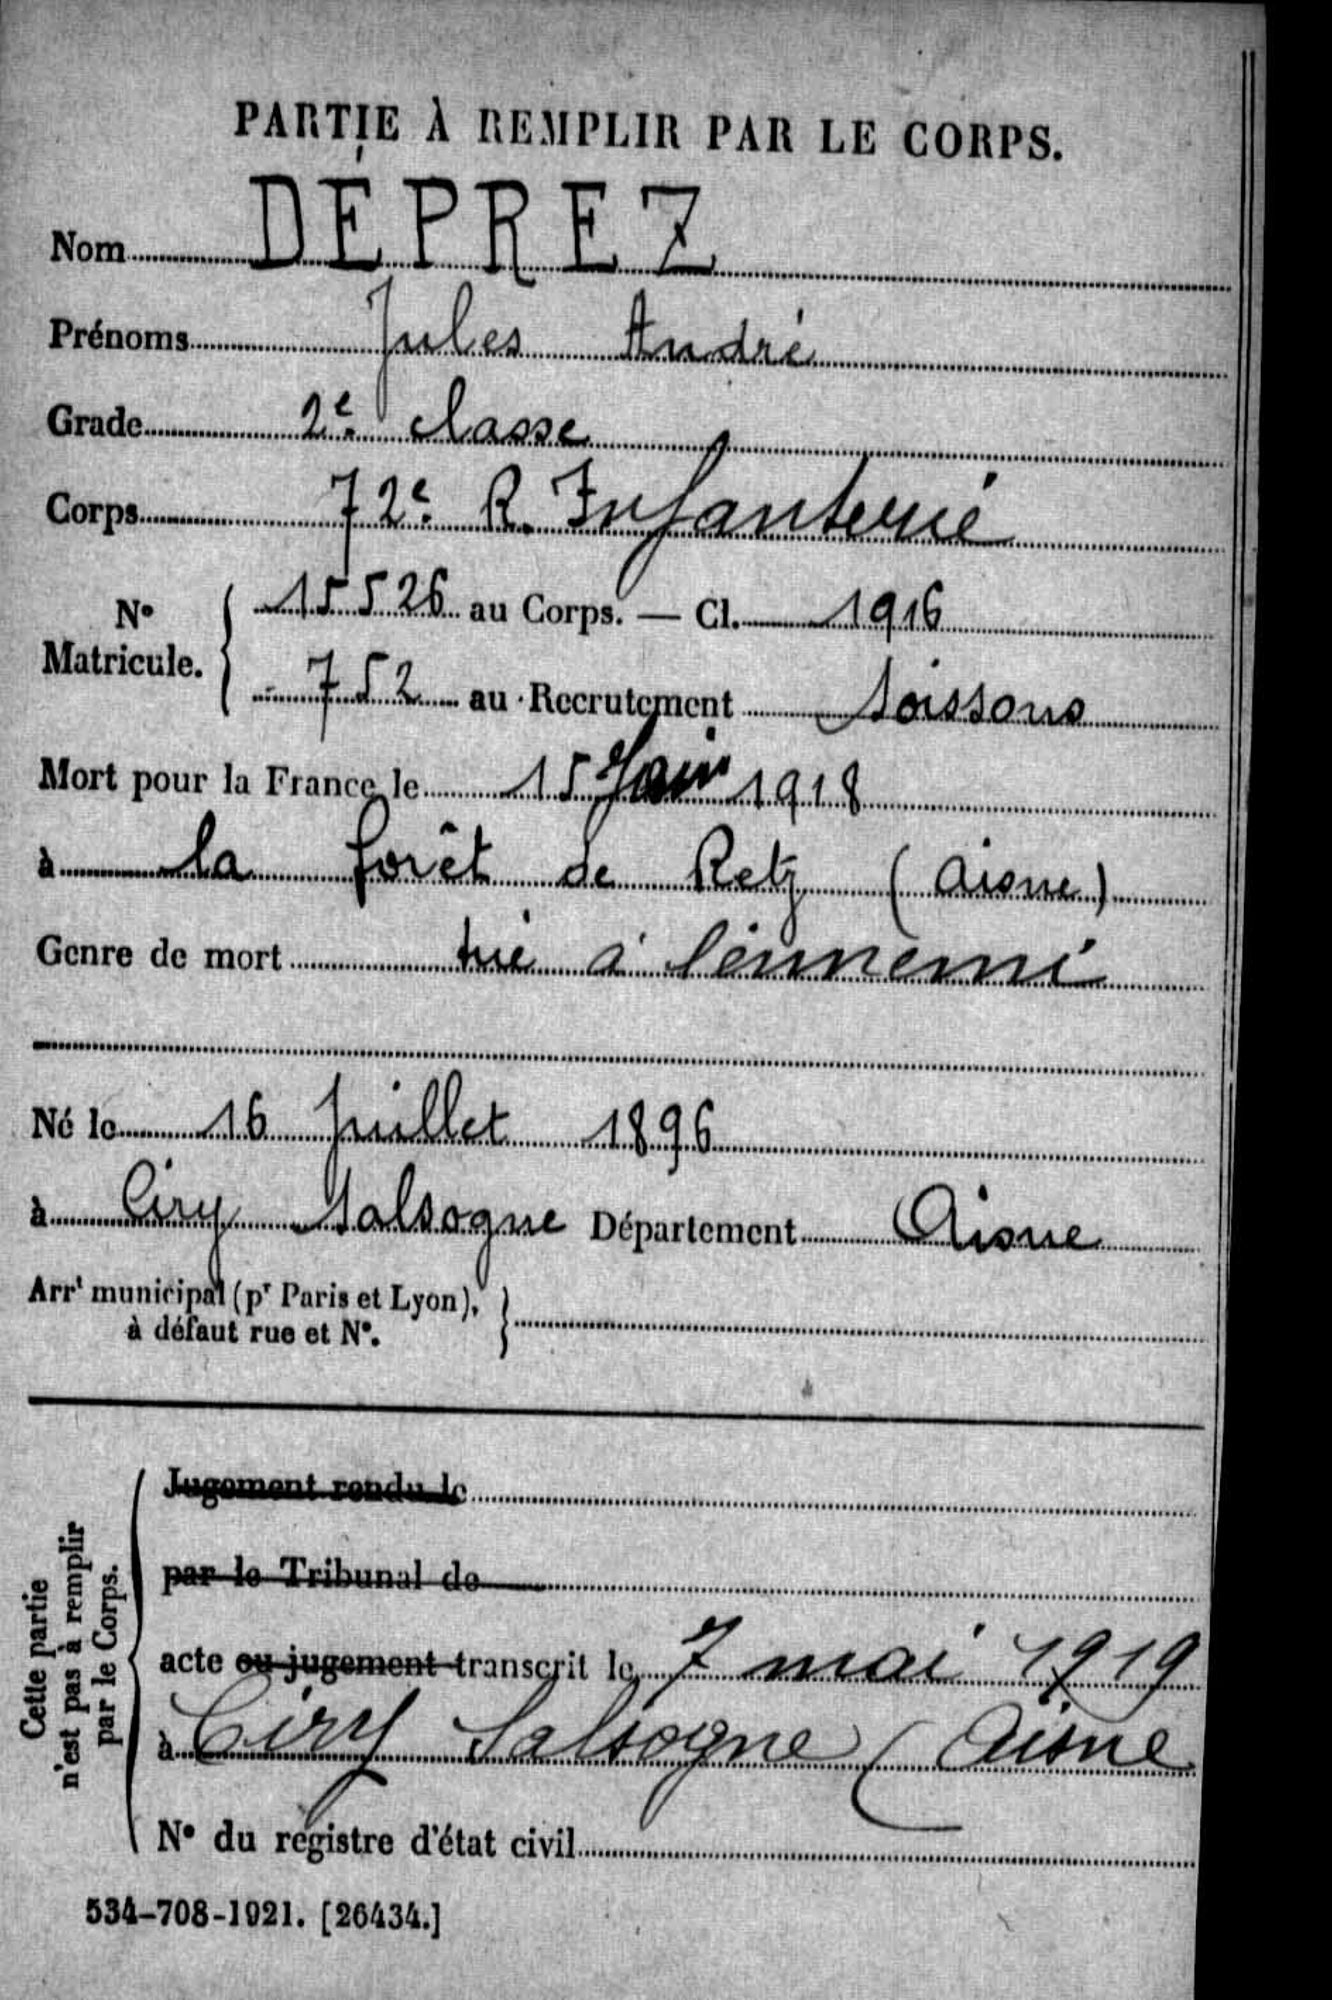 PARTIE À REMPLIR PAR LE CORPS.
Nom DÉPREZ
Prénoms Jules André
Grade 2e classe
Corps 72e R. Infanterie
No Matricule. { 15526 au Corps. — Cl. 1916
752 au Recrutement Soissons
Mort pour la France le 15 Juin 1918
à la forêt de Retz (Aisne)
Genre de mort tué à l'ennemi
Né le 16 Juillet 1896
à Ciry Salsogne Département Aisne
Arrt municipal (pr Paris et Lyon),
à défaut rue et No.
Cette partie
n'est pas à remplir
par le Corps.
Jugement rendu le
par le Tribunal de
acte ou jugement transcrit le 7 mai 1919
à Ciry Salsogne (Aisne
No du registre d'état civil
534-708-1921. [26434.]